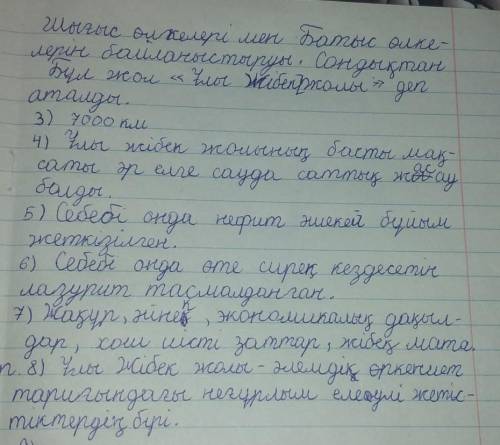 Шығыс өлкелері мен Батыс өлке-
лерін байланыстыруы. Сондықтан
Бұл жол « Ұлы Жібек жолы » деп
аталды.
3) 7000 км
4) Ұлы жібек жолының басты мақ-
саты әр елге сауда саттық жасау
болды.
5) Себебі онда нефрит әшекей бұйым
жеткізілген.
6) Себебі онда өте сирек кездесетін
лазурит тасмалданған.
7) Жақұр, әйнек, экономикалық дақыл-
дар, хош иісті заттар, жібек мата.
8) Ұлы Жібек жолы - әлемдік өркениет
тариғындағы неғұрлым елеулі жетіс-
тіктердің бірі.